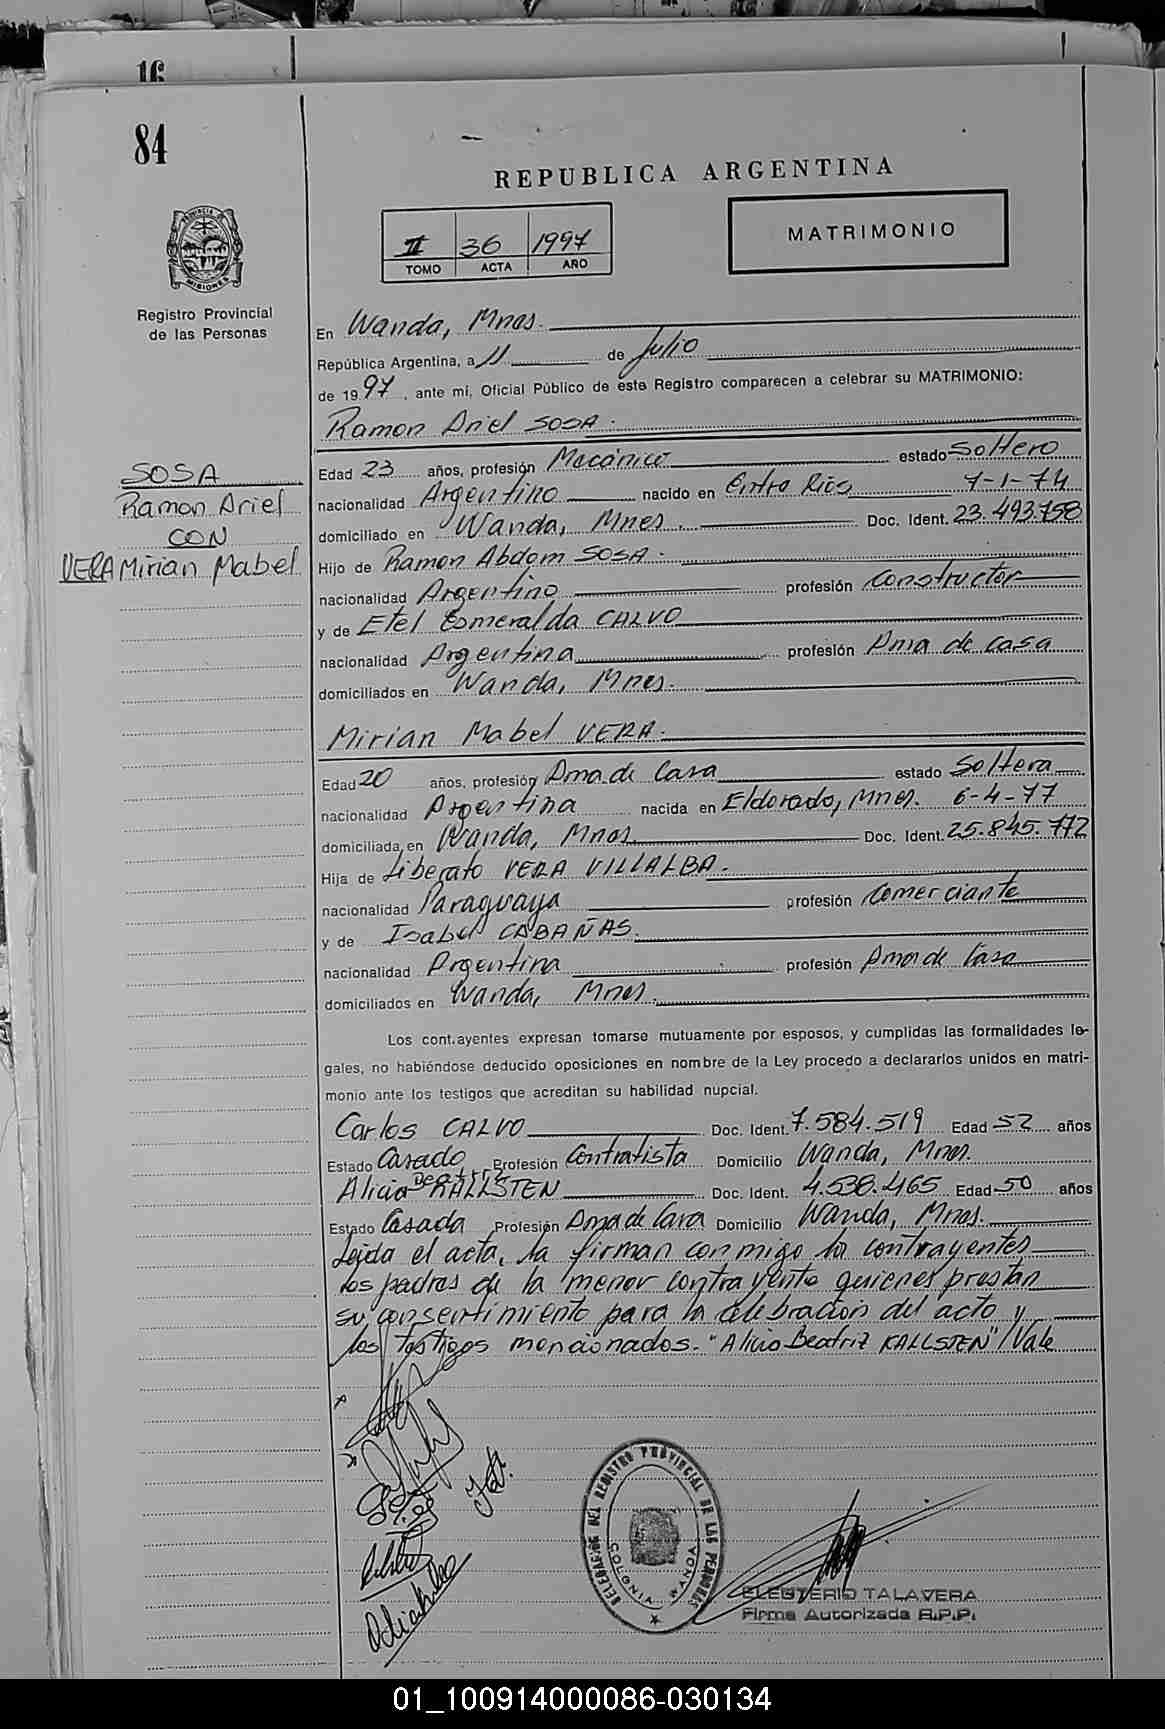 16
84
REPUBLICA ARGENTINA
PROVINCIA DE
MISIONES
Registro Provincial
de las Personas
II 36 1997
TOMO ACTA AÑO
MATRIMONIO
En Wanda, Mnes.
República Argentina, a 11 de Julio
de 1997, ante mí, Oficial Público de este Registro comparecen a celebrar su MATRIMONIO:
Ramon Ariel SOSA.
SOSA
Ramon Ariel
CON
VERA Mirian Mabel
Edad 23 años, profesión Mecánico estado Soltero
nacionalidad Argentino nacido en Entre Rios 7-1-74
domiciliado en Wanda, Mnes. Doc. Ident. 23.493.758
Hijo de Ramon Abdom SOSA.
nacionalidad Argentino profesión Constructor
y de Etel Esmeralda CALVO
nacionalidad Argentina profesión Ama de casa
domiciliados en Wanda, Mnes.
Mirian Mabel VERA.
Edad 20 años, profesión Ama de Casa estado Soltera
nacionalidad Argentina nacida en Eldorado, Mnes. 6-4-77
domiciliada en Wanda, Mnes. Doc. Ident. 25.845.772
Hija de Liberato VERA VILLALBA.
nacionalidad Paraguaya profesión Comerciante
y de Isabel CABAÑAS.
nacionalidad Argentina profesión Ama de Casa
domiciliados en Wanda, Mnes.
Los cont.ayentes expresan tomarse mutuamente por esposos, y cumplidas las formalidades le-
gales, no habiéndose deducido oposiciones en nombre de la Ley procedo a declararlos unidos en matri-
monio ante los testigos que acreditan su habilidad nupcial.
Carlos CALVO Doc. Ident. 7.584.519 Edad 52 años
Estado Casado Profesión Contratista Domicilio Wanda, Mnes.
Alicia Beatriz KALLSTEN Doc. Ident. 4.538.465 Edad 50 años
Estado Casada Profesión Ama de Casa Domicilio Wanda, Mnes.
Leida el acta, la firman conmigo los contrayentes
los padres de la menor contrayente quienes prestan
su consentimiento para la celebracion del acto y
los testigos mencionados. "Alicia Beatriz KALLSTEN" Vale
DEL REGISTRO PROVINCIAL DE LAS PERSONAS
COLONIA WANDA
ELEUTERIO TALAVERA
Firma Autorizada R.P.P.
01_100914000086-030134